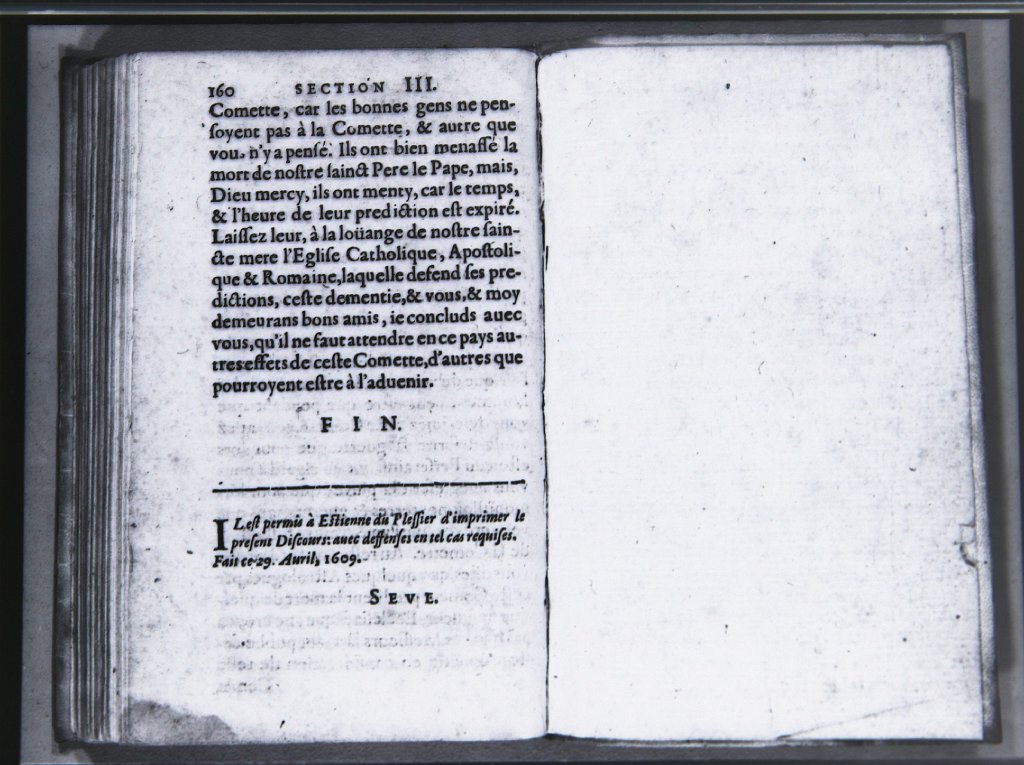 160 SECTION III.
Comette, car les bonnes gens ne pen-
ſoyent pas à la Comette, & autre que
vou. n'y a penſé. Ils ont bien menaſſé la
mort de noſtre ſainct Pere le Pape, mais,
Dieu mercy, ils ont menty, car le temps,
& l'heure de leur prediction eſt expiré.
Laiſſez leur, à la loüange de noſtre ſain-
cte mere l'Egliſe Catholique, Apoſtoli-
que & Romaine, laquelle defend ſes pre-
dictions, ceſte dementie, & vous, & moy
demeurans bons amis, ie concluds auec
vous, qu'il ne faut attendre en ce pays au-
tres effets de ceſte Comette, d'autres que
pourroyent eſtre à l'aduenir.
FIN.
IL eſt permis à Eſtienne du Pleſſier d'imprimer le
preſent Diſcours: auec deffenſes en tel cas requiſes.
Fait ce 29. Auril, 1609.
SEVE.